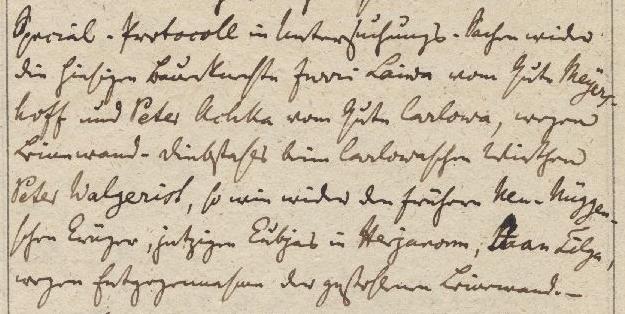 Special-Protocoll in Untersuchungs-Sachen wider
die hiesigen Bauerknechte Juri Laiwa vom Gute Meyers-
hoff und Peter Achka vom Gute Carlowa, wegen
Leinwand-Diebstahls beim Carlowaschen Wirthen
Peter Walgerist, so wie wider den frühern Neu-Nüggen-
schen Krüger, jetzigen in Herjanorm, Jaan Tilga,
wegen Entgegennahme der gestohlenen Leinewand.-